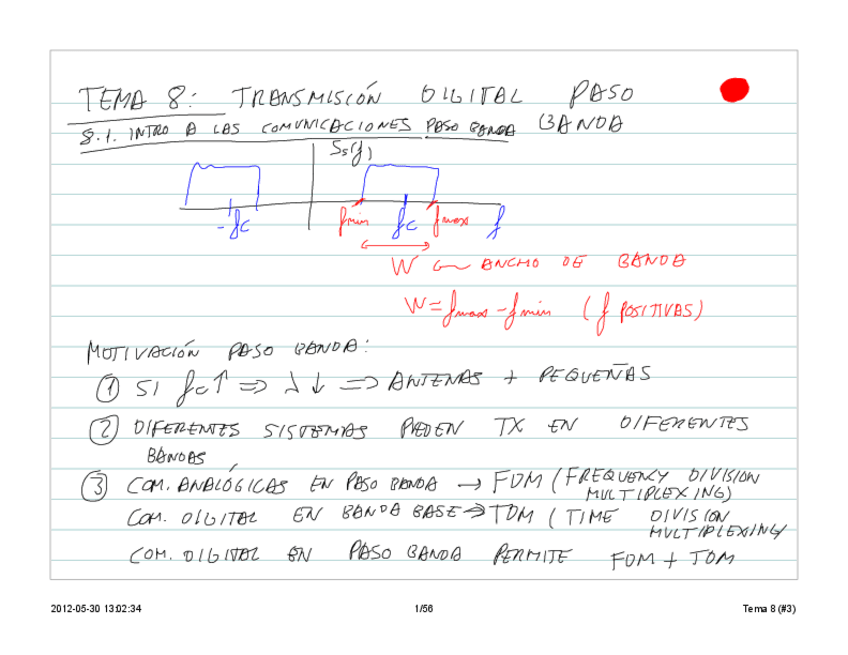 TEMA 8: TRANSMISIÓN DIGITAL PASO BANDA
8.1. INTRO A LAS COMUNICACIONES PASO BANDA
Ss(f)
-fc fmin fc fmax f
W ← ANCHO DE BANDA
W = fmax - fmin (f POSITIVAS)
MOTIVACIÓN PASO BANDA:
① SI fc↑ ⇒ λ ↓ ⇒ ANTENAS + PEQUEÑAS
② DIFERENTES SISTEMAS PUEDEN TX EN DIFERENTES
BANDAS
③ COM. ANALÓGICAS EN PASO BANDA → FDM (FREQUENCY DIVISION
MULTIPLEXING)
COM. DIGITAL EN BANDA BASE → TDM (TIME DIVISION
MULTIPLEXING
COM. DIGITAL EN PASO BANDA PERMITE FDM + TDM
2012-05-30 13:02:34 1/56 Tema 8 (#3)